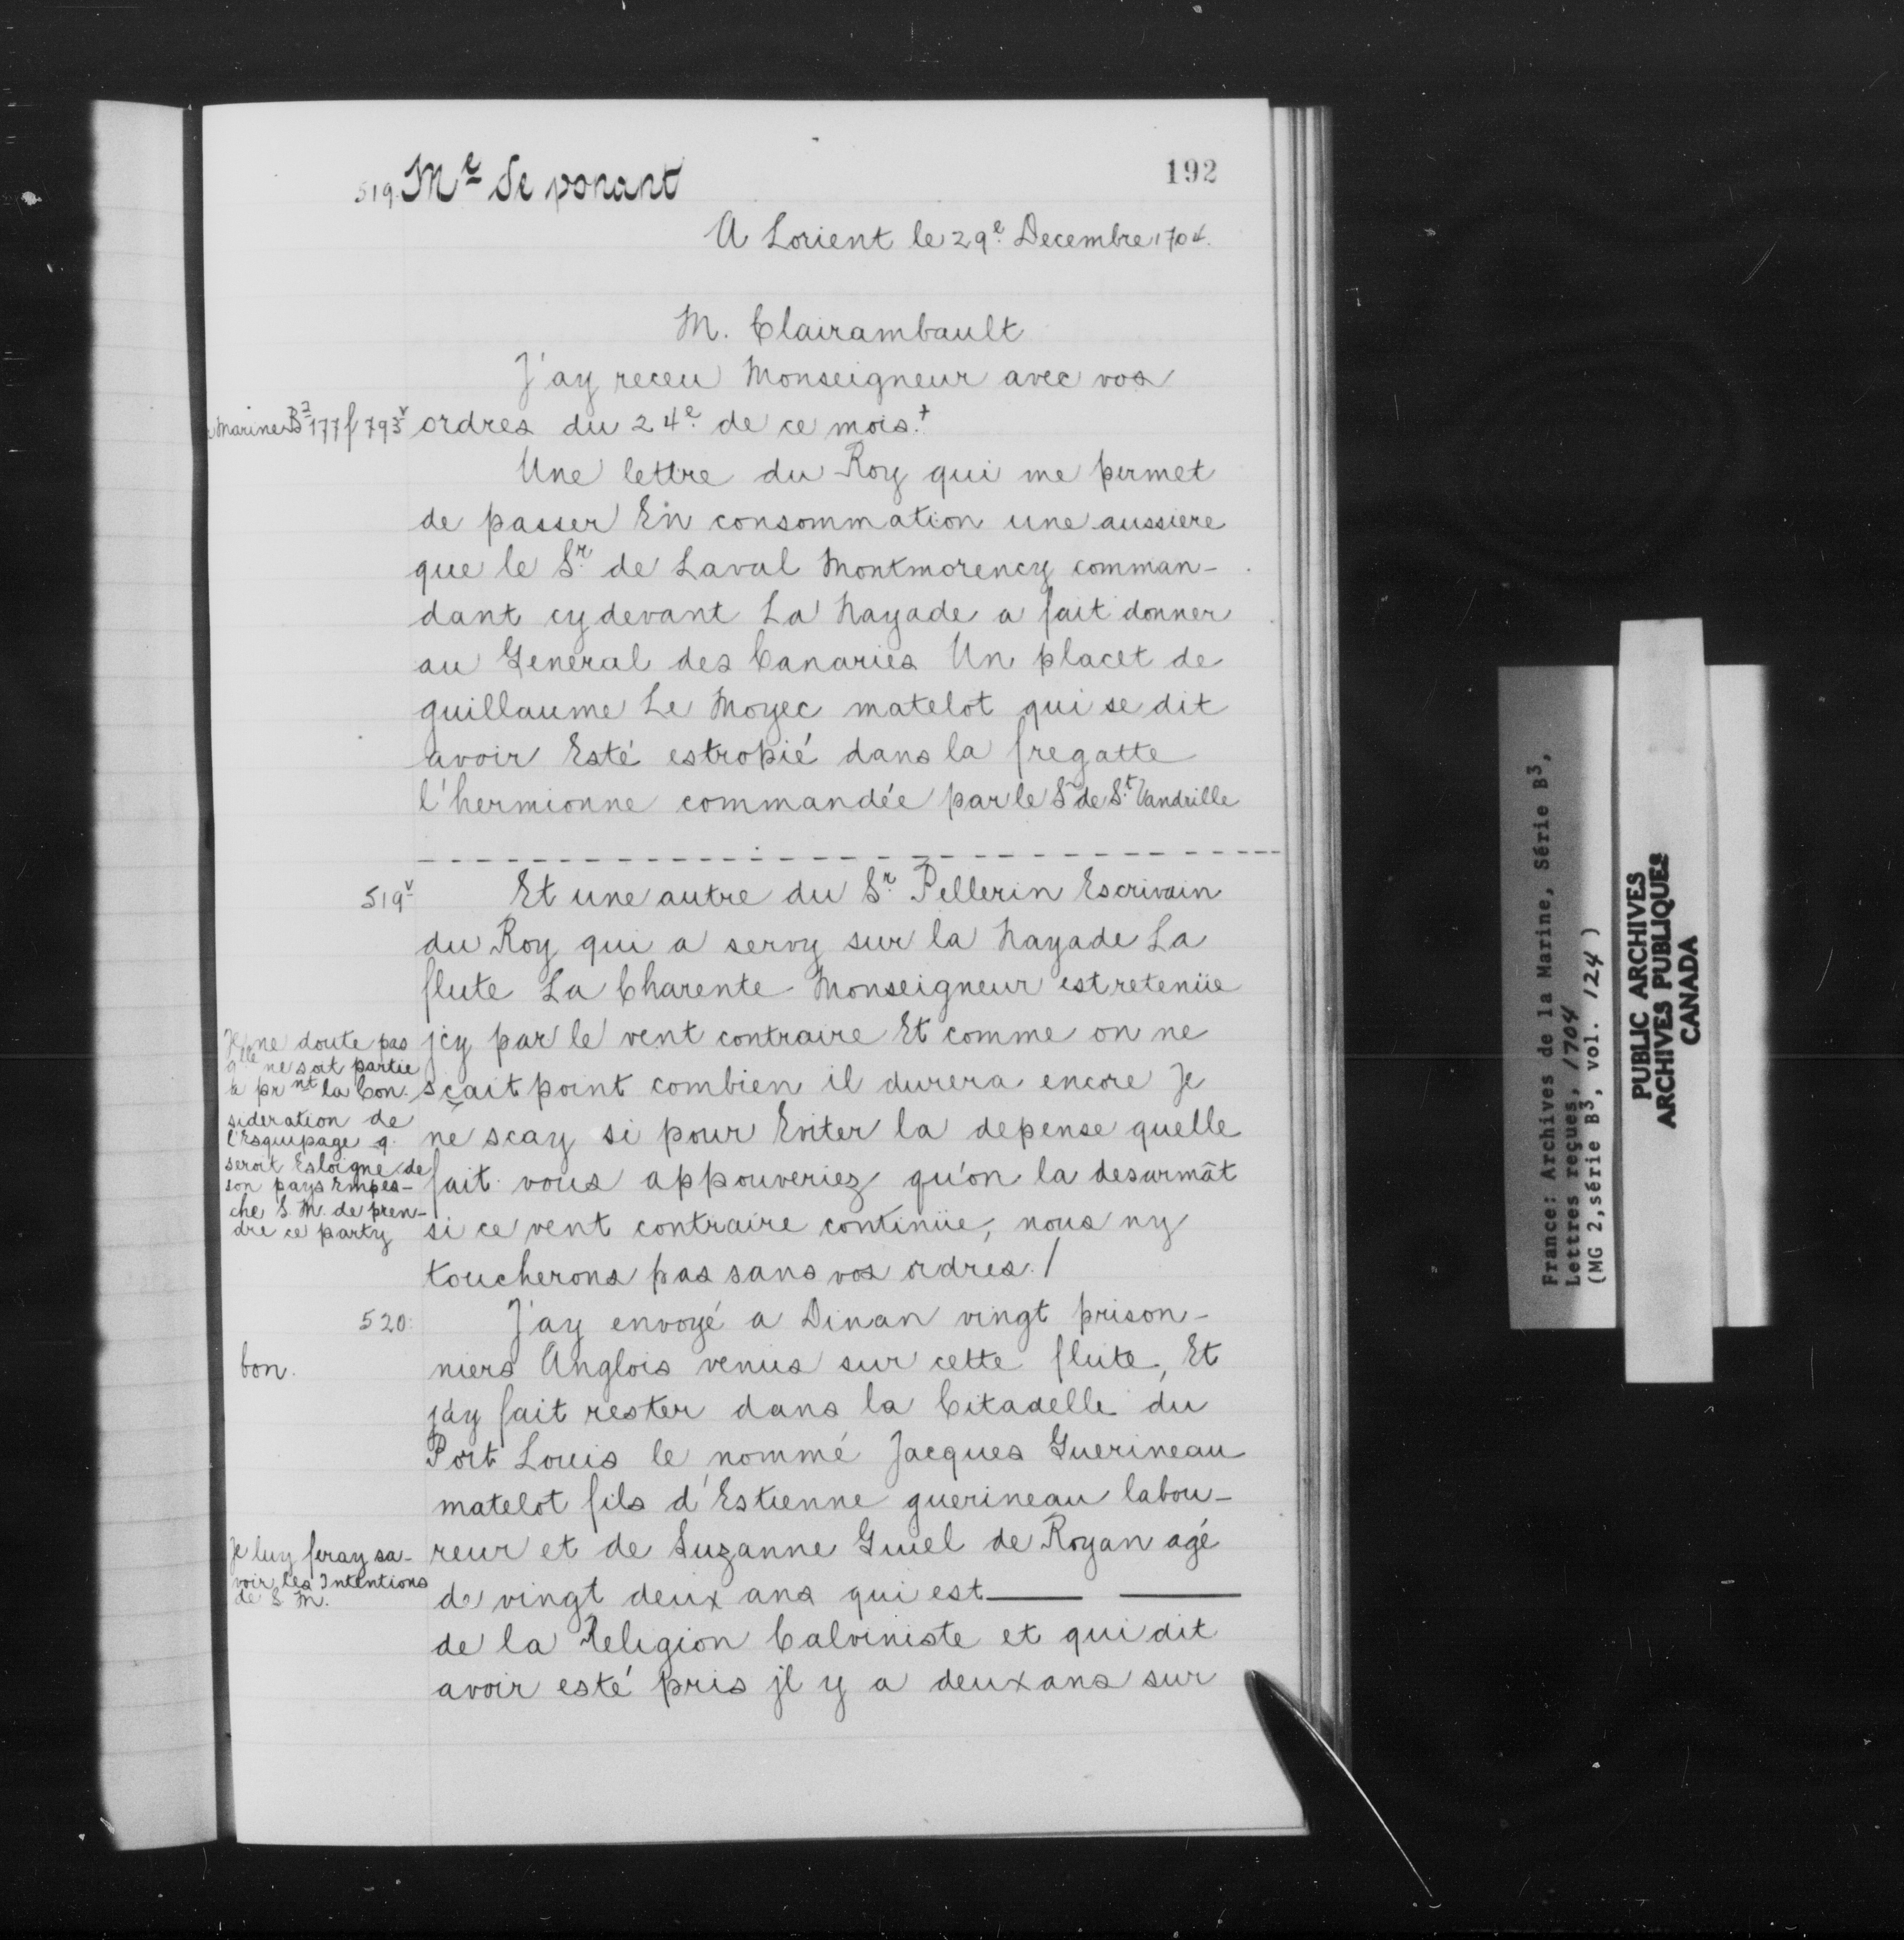 192
519. Me de ponant
A Lorient le 29e Decembre 1704.
M. Clairambault
J'ay receu Monseigneur avec vos
Marine B2 177 f 793v
ordres du 24e de ce mois.+
Une lettre du Roy qui me permet
de passer En consommation une aussiere
que le Sr de Laval Montmorency comman-
dant cy devant La Nayade a fait donner
au General des Canaries Un placet de
guillaume Le Moyec matelot qui se dit
avoir Esté estropié dans la fregatte
l'hermionne commandée par le Sr de St Vandrille
519v
Et une autre du Sr Pellerin Escrivain
du Roy qui a servy sur la Nayade La
flute La Charente Monseigneur est retenüe
jcy par le vent contraire Et comme on ne
sçait point combien il durera encore Je
ne scay si pour Eviter la depense quelle
fait vous appouveriez qu'on la desarmât
si ce vent contraire continüe, nous ny
toucherons pas sans vos ordres./
Je ne doute pas
qlle ne soit partie
a prnt la Con-
sideration de
l'Esquipage q.
seroit Esloigné de
son pays Empes-
che S. M. de pren-
dre ce party
520.
J'ay envoyé a Dinan vingt prison-
niers Anglois venus sur cette flute, Et
bon.
j'ay fait rester dans la Citadelle du
Port Louis le nommé Jacques Guerineau
matelot fils d'Estienne guerineau labou-
reur et de Suzanne Gruel de Royan agé
de vingt deux ans qui est
Je luy feray sa-
voir les Intentions
de S M.
de la Religion Calviniste et qui dit
avoir esté pris jl y a deux ans sur
France: Archives de la Marine, Série B3,
Lettres reçues, 1704
(MG 2, série B3, vol. 124 )
PUBLIC ARCHIVES
ARCHIVES PUBLIQUES
CANADA